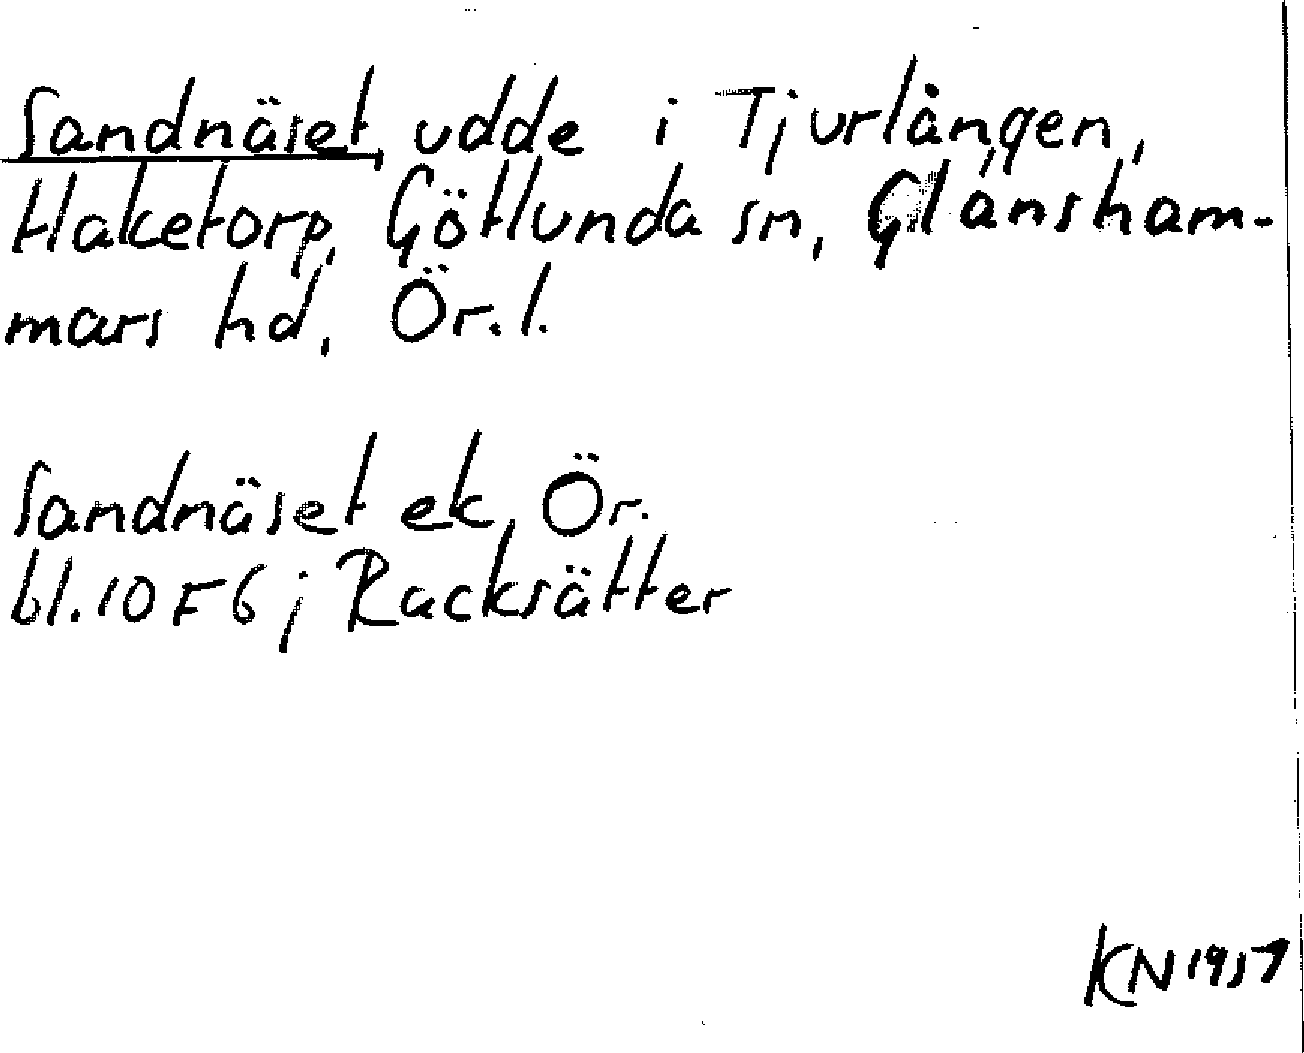 Sandnäset, udde i Tjurlången,
Haketorp, Götlunda sn, Glansham-
mars hd, Ör. l.
Sandnäset ek, Ör.
bl. 10F6; Racksätter
KN 1957